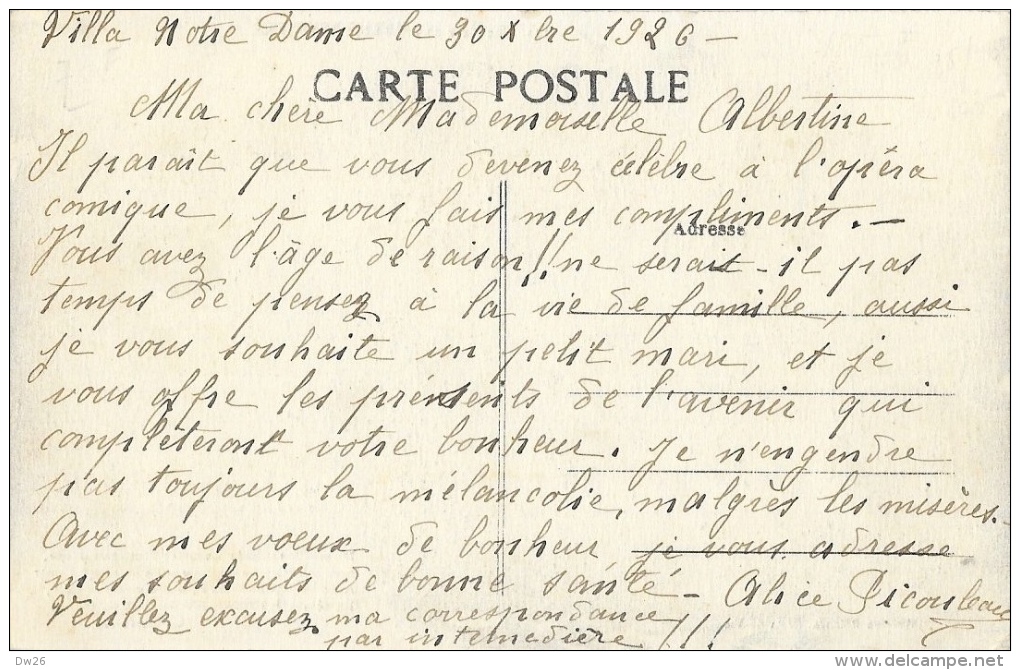 Villa Notre Dame le 30 Xbre 1926 -
CARTE POSTALE
Ma chère Mademoiselle Albertine
Il paraît que vous devenez célèbre à l'opéra
comique, je vous fais mes compliments. -
Adresse
Vous avez l'âge de raison!! ne serait-il pas
temps de pensez à la vie de famille, aussi
je vous souhaite un petit mari, et je
vous offre les présents de l'avenir qui
complèteront votre bonheur. Je n'engendre
pas toujours la mélancolie, malgrès les misères. -
Avec mes voeux de bonheur je vous adresse
mes souhaits de bonne santé - Alice
Veuillez excusez ma correspondance
par intemedière !!!
Dw26
www.delcampe.net